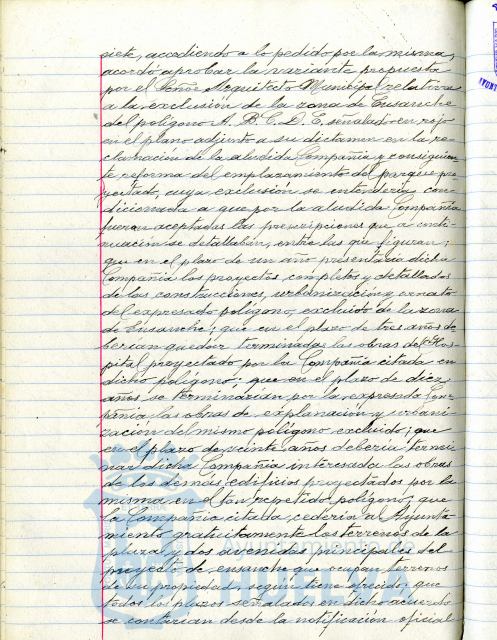 siete, accediendo a lo pedido por la misma,
acordó aprobar la variante propuesta
por el Señor Arquitecto Municipal relativa
a la exclusión de la zona de Ensanche
del polígono A. B. C. D. E. señalado en rojo
en el plano adjunto a su dictamen en la re-
clamación de la aludida Compañía y consiguien-
te reforma del emplazamiento del parque pro-
yectado, cuya exclusión se entendería con-
dicionada a que por la aludida Compañía
fueran aceptadas las prescripciones que a conti-
nuación se detallaban, entre las que figuran;
que en el plazo de un año presentaría dicha
Compañía los proyectos, completos y detallados
de las construcciones, urbanización y ornato
del expresado polígono, excluido de la zona
de Ensanche; que en el plazo de tres años de-
berían quedar terminadas las obras del Hos-
pital proyectado por la Compañía citada en
dicho polígono; que en el plazo de diez
años se terminarían por la expresada Com-
pañía las obras de explanación y urbani-
zación del mismo polígono excluido; que
en el plazo de veinte años debería termi-
nar dicha Compañía interesada las obras
de los demás edificios proyectados por la
misma en el tan repetido polígono; que
la Compañía citada, cedería al Ayunta-
miento gratuitamente los terrenos de la
plaza y dos avenidas principales del
proyecto de ensanche que ocupan terrenos
de su propiedad, según tiene ofrecido; que
todos los plazos señalados en dicho acuerdo
se contarían desde la notificación oficial